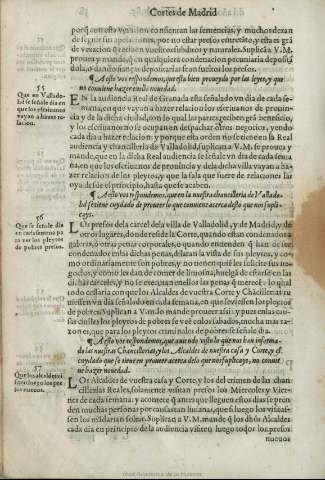 Cortes de Madrid
porq̃ con esto vynieren fe conoscan las sentencias, y muchos dexan
de seguir sus apelaciones, por no estar presos entretãto, y esta es grã
de vexacion q̃ reciben vuestros subditos y naturales. Suplicã a V. M.
prouea y mande, q̃ en qualquiera condenacion pecuniaria deposita
dola, o dando fianças depositarias sean sueltos los presos.
¶ A esto vos respondemos, que esta bien proueydo por las leyes, y que
no conuiene hazer enello nouedad.
55
Que en Vallado-
lid se señale dia en
que los escriuanos
vayan a hazer re-
lacion.
EN la audiencia Real de Granada esta señalado vn dia de cada se-
mana, en que vayan a hazer relacion los escriuanos de prouin-
cia y de la dicha ciudad, con lo qual las partes reciben grã beneficio,
y los escriuanos no se ocupan en despachar otros negocios, yendo
cada dia a hazer relacion: y porque esta orden no se tiene en la Real
audiencia y chancilleria de Valladolid, suplican a V. M. se prouea y
mande, que en la dicha Real audiencia se señale vn dia de cada sema
na, en que los escriuanos de prouincia y dela dicha villa vayan a ha-
zer relacion de los pleytos, y que la sala que fuere de relaciones las
oya desde el principio, hasta que se acaben.
¶ A esto vos respondemos, que en la nuestra chancilleria de Vallado-
lid se tiene cuydado de proueer lo que conuiene acerca desto que nos supli-
cays.
56
Que se señale dia
en cada semana pa
ra ver los pleytos
de pobres presos.
LOs presos dela carcel dela villa de Valladolid, y de Madrid, y de
otros lugares, donde reside la Corte, quando estan condenados a
galeras, o otras penas corporales, o quando entienden q̃ han de ser
condenados enlas dichas penas, dilatan la vista de sus pleytos, y co-
mo ordinariamente son pobres, y no tienen quiẽ les solicite sus ne-
gocios, y comẽ les dan de comer de limosna, huelgã de estarse en las
dichas carceles,
uiessen vn dia señalado en cada semana, en que se viessen los pleytos
de pobres. Suplican a V. M. lo mande proueer assi:
¶ A esto vos respondemos, que auiendo visto lo que nos han informa-
do las nuestras Chancillerias, y los Alcaldes de nuestra casa y Corte, y el
cuydado que se tiene en proueer acerca desto que nos suplicays, no conuie-
ne hazer nouedad.
57
Que los alcaldes vi
siten luego los pre
sos nueuos.
LOs Alcaldes de vuestra casa y Corte, y los del crimen de las chan-
cillerias Reales, solamente visitan presos los Miercoles y Vier-
nes de cada semana: y acontece q̃ antes que lleguen estos dias se pren
den muchas personas por causas tan liuianas, que si luego los visitas-
sen los mãdarian soltar. Suplican a V. M. mande q̃ los dhos Alcaldes
cada dia en principio de la audiencia visiten luego todos los presos
nueuos
Real Academia de la Historia